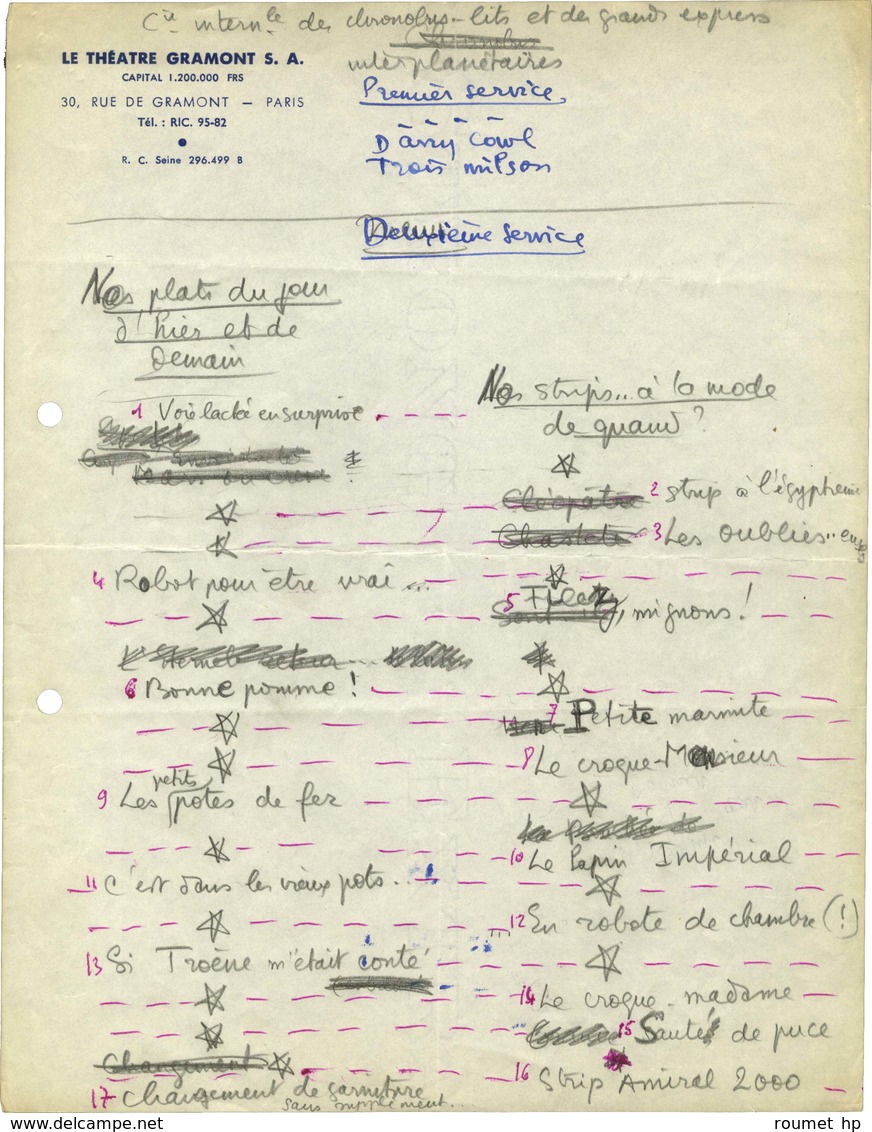 Cie internle des chronobus-lits et des grands express
interplanétaires
LE THÉATRE GRAMONT S. A.
CAPITAL 1.200.000 FRS
30, RUE DE GRAMONT — PARIS
Tél. : RIC. 95-82
R. C. Seine 296.499 B
Premier service
Darry Cowl
Trois milson
Deuxième service
Nos plats du jour
d'hier et de
Demain
1 Voie lactée en surprise
4 Robot pour être vrai...
6 Bonne pomme !
petits
9 Les potes de fer
11 C'est dans les vieux pots..
13 Si Troène m'était conté
Changement
17 Changement de garniture
sans supplément...
Nos strips.. à la mode
de quand ?
Cléopâtre 2 Strip à l'égyptienne
3 Les oubliés.. en
5 mignons !
7 Petite marmite
8 Le croque-Monsieur
10 Le lapin Impérial
12 En robote de chambre (!)
14 Le croque-madame
15 Sauté de puce
16 Strip Amiral 2000
roumet hp